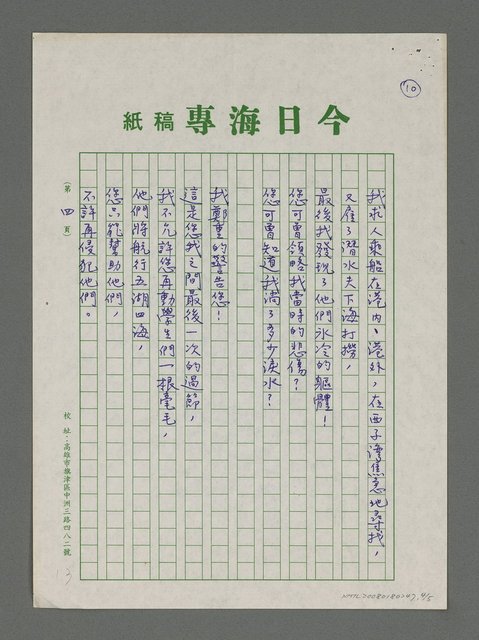 10
今日海專稿紙
我求人乘船在港內、港外,在西子灣焦急地尋找,
又雇了潛水夫下海打撈,
最後我發現了他們冰冷的軀體!
您可曾領略我當時的悲傷?
您可曾知道我淌了多少淚水?
我鄭重的警告您!
這是您我之間最後一次的過節,
我不允許您再動學生們一根毫毛,
他們將航行五湖四海,
您只能幫助他們,
不許再侵犯他們。
(第四頁)
校址:高雄市旗津區中洲三路四八二號
13
NMTL20080180247, 4/5